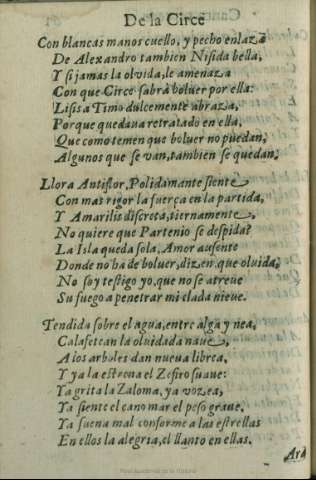 De la Circe
Con blancas manos cuello, y pecho enlaza
De Alexandro tambien Nisida bella,
Y si jamas la olvida, le amenaza
Con que Circe sabrà boluer por ella:
Lisis a Timo dulcemente abraza,
Porque quedaua retratado en ella,
Que como temen que boluer no puedan,
Algunos que se van, tambien se quedan.
Llora Antiflor, Polidamante siente
Con mas rigor la fuerça en la partida,
Y Amarilis discreta, tiernamente,
No quiere que Partenio se despida:
La Isla queda sola, Amor ausente
Donde no ha de boluer, dizen, que oluida,
No soy testigo yo, que no se atreue
Su fuego a penetrar mi elada nieue.
Tendida sobre el agua, entre alga y nea,
Calafetean la oluidada naue,
A los arboles dan nueua librea,
Y ya la estrena el Zefiro suaue:
Ya grita la Zaloma, ya vozea,
Ya siente el cano mar el peso graue.
Ya suena mal conforme a las estrellas
En ellos la alegria, el llanto en ellas.
Real Academia de la Historia